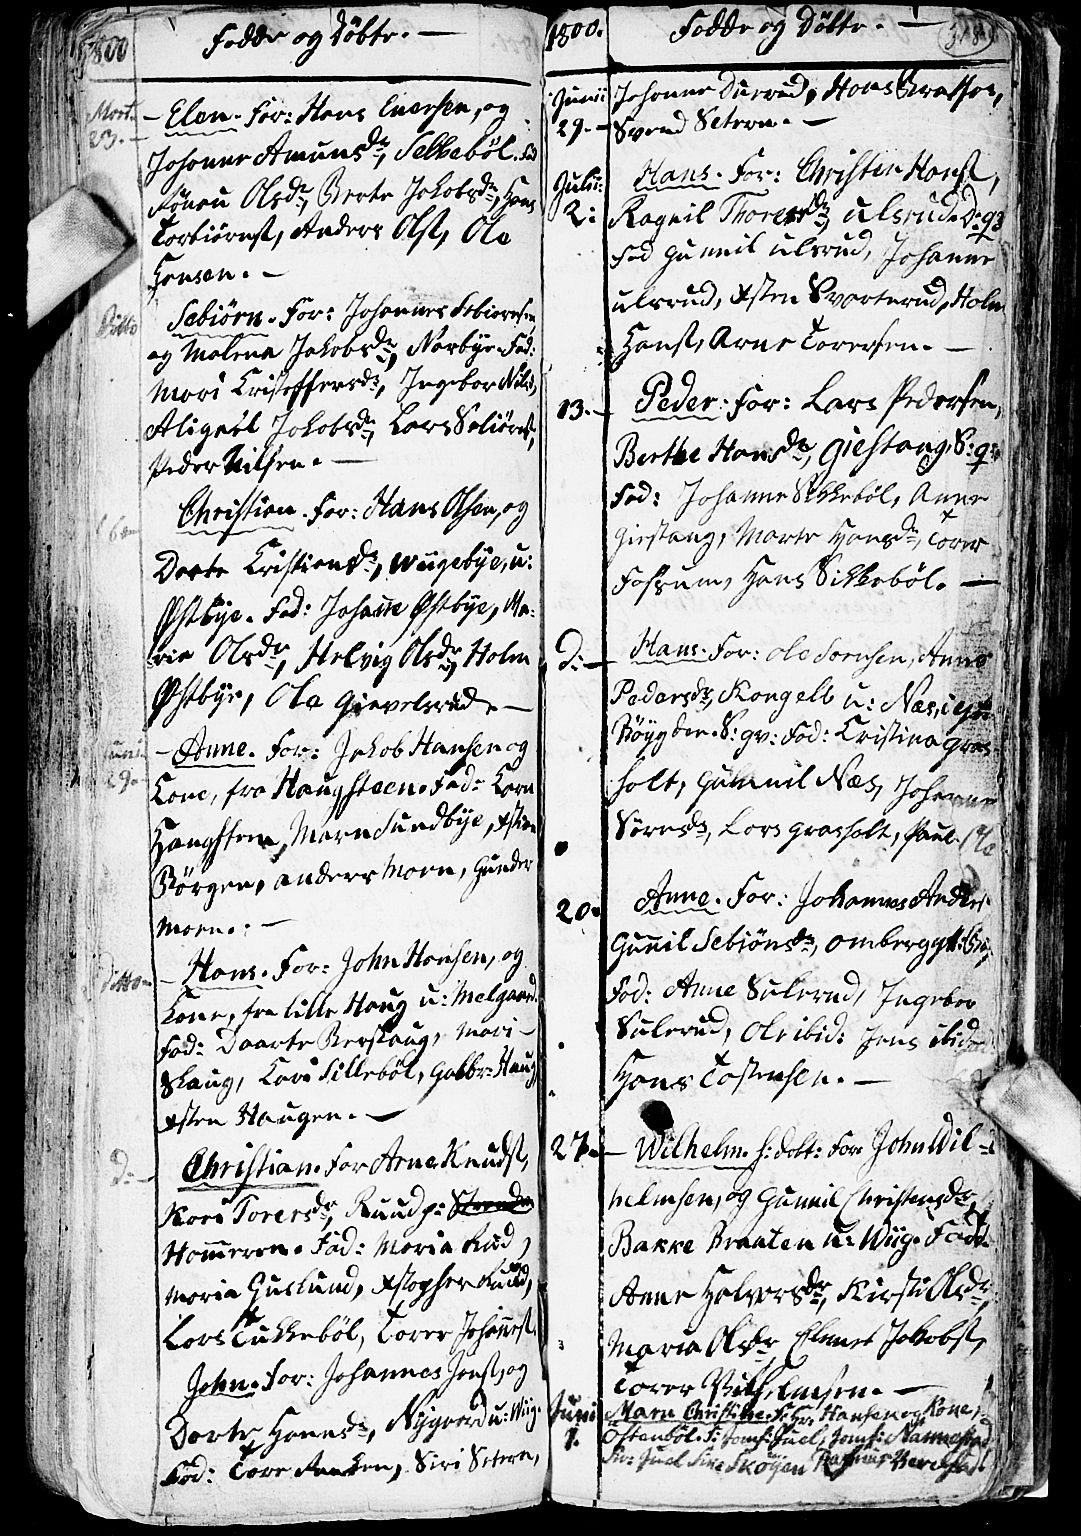 1800
Fødde og Døbte. —
Mart.
23. —
— Elen. For: Hans Eversen, og
Johanne Amunds dr, Sekkebøl. Fad
Olsdr, Berte Jakobsdr, Hans
Torbiørnsl, Anders Olsl, Ole
Hansen. —
Ditto
Sebiørn. For: Johannes Sebiørnsen,
og Malena Jakobsdr, Narbye. Fad:
Mari Cristoffersdr, Ingebor Nilsd,
Aligael Jakobsdr, Lars
Peder Nilsen. —
Christian. For: Hans Olsen, og
Dorte Cristiansdr, Wiigebye, u:
Østbye. Fad: Johanne Østbye, Ma-
rie Olsdr, Helvig Olsdr, Holm
Østbye, Ole Gievelsrud. —
Juni
29. —
— Anne. For: Jakob Hansen og
Kone, fra Haugsteen. Fad: Karn
Haugsteen, Marn Sundbye,
Børgen, Anders Moen, Gunder
Moen. —
Ditto —
— Hans. For: John Hansen, og
Kone, fra Lille Haug u: Melgaard.
Fad: Daarte Berskaug, Mari
Skaug, Kari Sillebøl, Gulbr: Haug
Østen Haugen. —
D: —
Christian. For Arne Knudsl,
Kari Torersdr, Ruud p:
Hammeren. Fad: Maria Rud,
Maria Guslund, Xstopher Ruud,
Lars Tukkebøl, Torer Johannesl.
John. For: Johannes Jensl, og
Dorte Hansdr, Nygaard u: Wiig.
Fad: Tore Siri Setern,
1800.
Fødde og Døbte. —
318
Junii
29. —
Johanne Duerud, Hans Braathen,
Svend Setern. —
Julii:
2:
Hans. For: Christen Hansl,
Ragnil Thoresdr, Ulsrud. D: q:
Fad Gunnil Ulsrud, Johanne
Ulsrud, Østen Svarterud, Holm
Hansl, Arne Torersen. —
13. —
Peder. For: Lars Pedersen,
Berthe Hansdr, Giestang. S: q:
Fad: Johanne Sikkebøl, Anne
Giestang, Marte Hansdr, Torer
Fossum, Hans Sikkebøl. —
D: —
Hans. For: Ole Sørensen, Anne
Pedersdr, Kongell u: Næs, i
Bøygden. S: gv: Fad: Cristina Gras-
holt, Gunnil Næs, Johanne
Sørnsdr, Lars Grasholt, Paul
20.
Anne. For: Johannes Anders
Gunil Sebiønsdr, Ombergg
Fad: Anne Sulerud, Ingebor
Sulerud, Ole ibid: Jens ibid
Hans Tostensen. —
27. —
— Wilhelm. h: døbt: For: John Wil-
helmsen, og Gunnil Christensdr,
Bakke Braaten u: Wiig. Fadd:
Anne Halvorsdr, Kirsti Olsdr,
Maria Olsdr Elmer Jakobsl,
Torer Wilhelmsen. —
Juni
1.
Maren Christine. F: Hansen og Kone,
Østenbøl. F: Jomf: Juel, Jomf: Nannestad
Hr: Juel Skøyen Rasmus